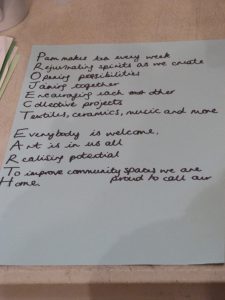 Pam makes tea every week
Rejuvinating spirits as we create
Opening possibilities
Joining together
Encouraging each other
Collective projects
Textiles, ceramics, music and more
Everybody is welcome,
Art is in us all
Realising potential
To improve community spaces we are
Home. proud to call our